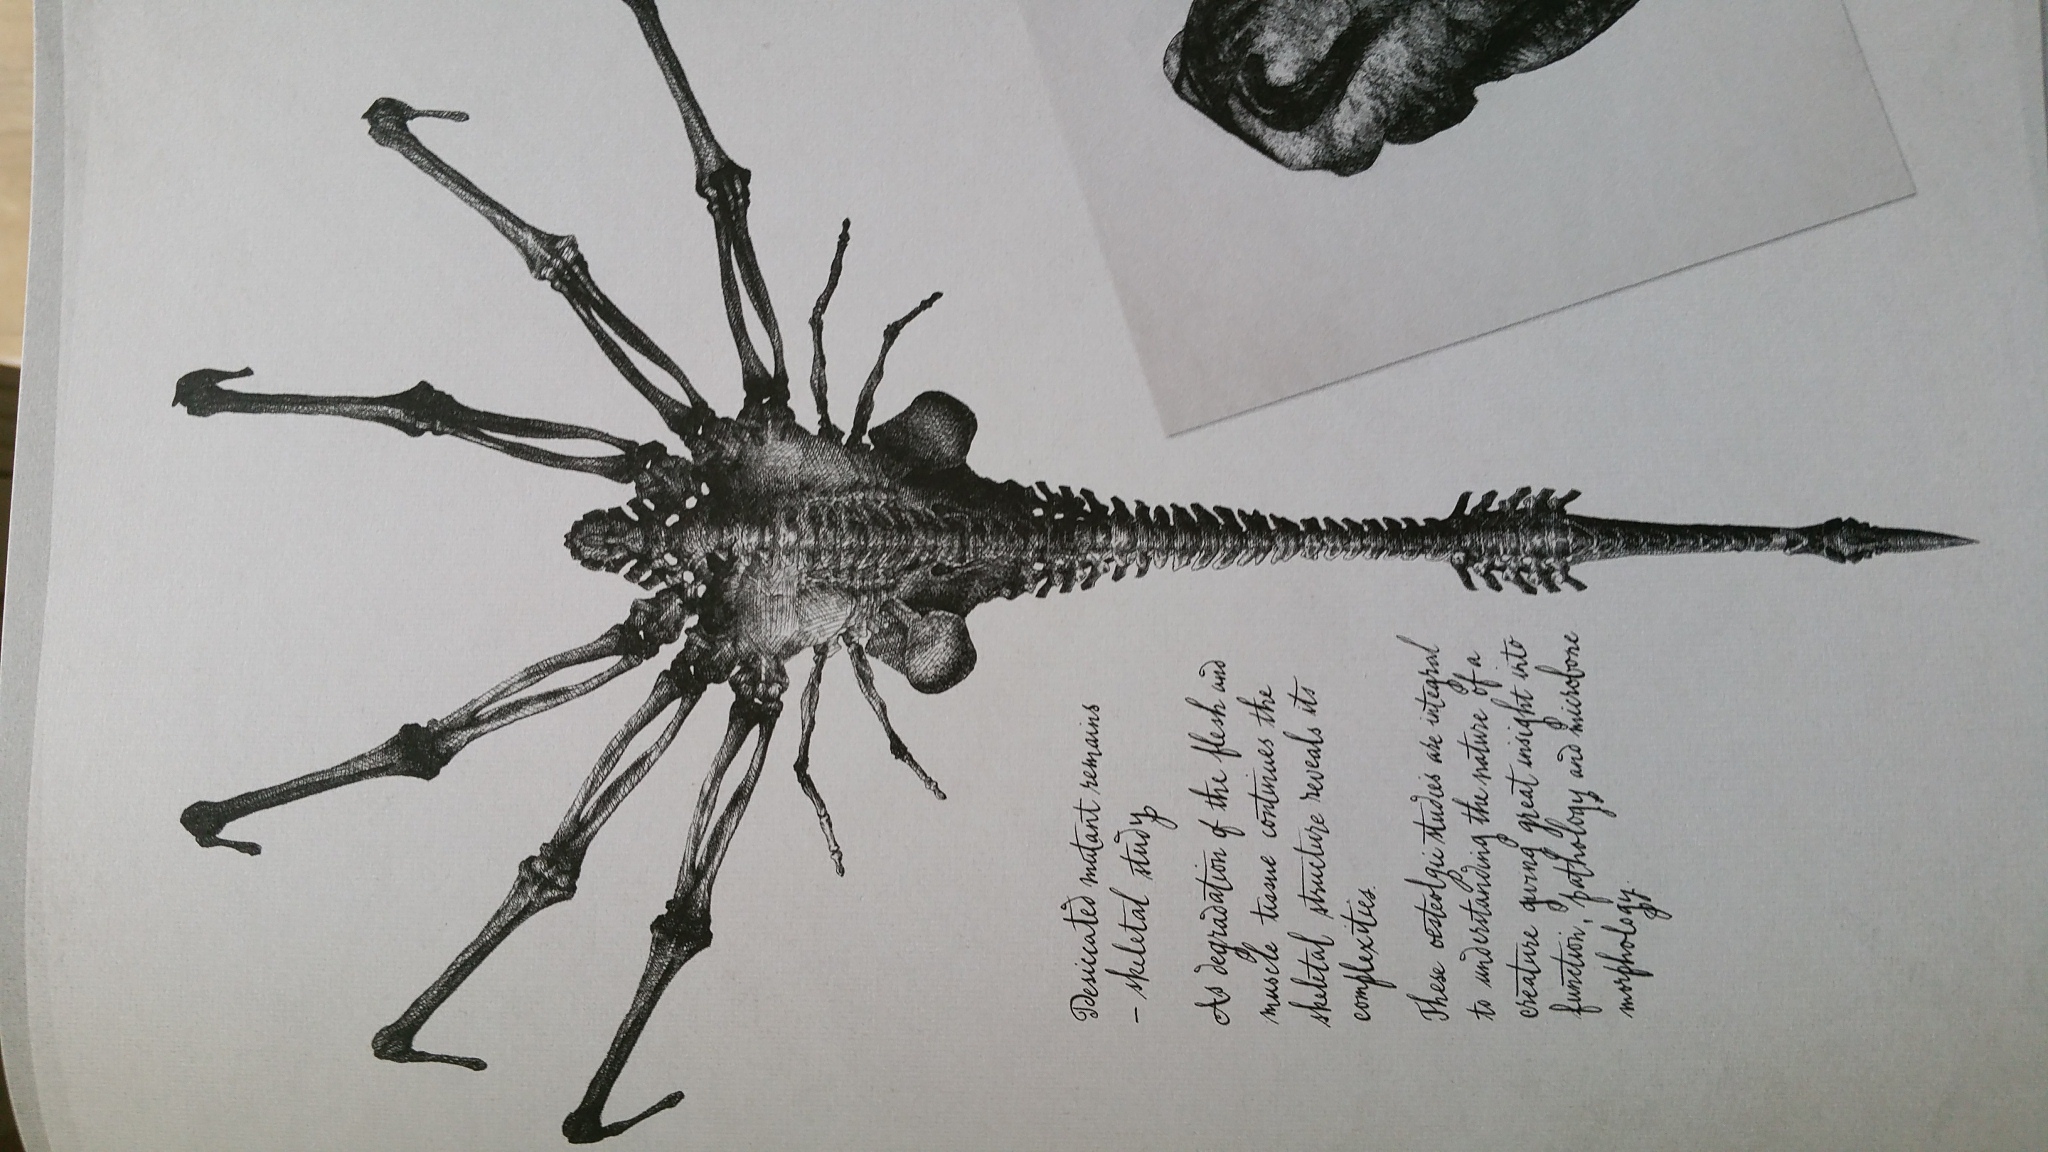 Desiccated mutant remains
– skeletal study
As degradation of the flesh and
muscle tissue continues the
skeletal structure reveals its
complexities.
These oesteolgic studies are integral
to understanding the nature of a
creature giving great insight into
function, pathology and microbone
morphology.